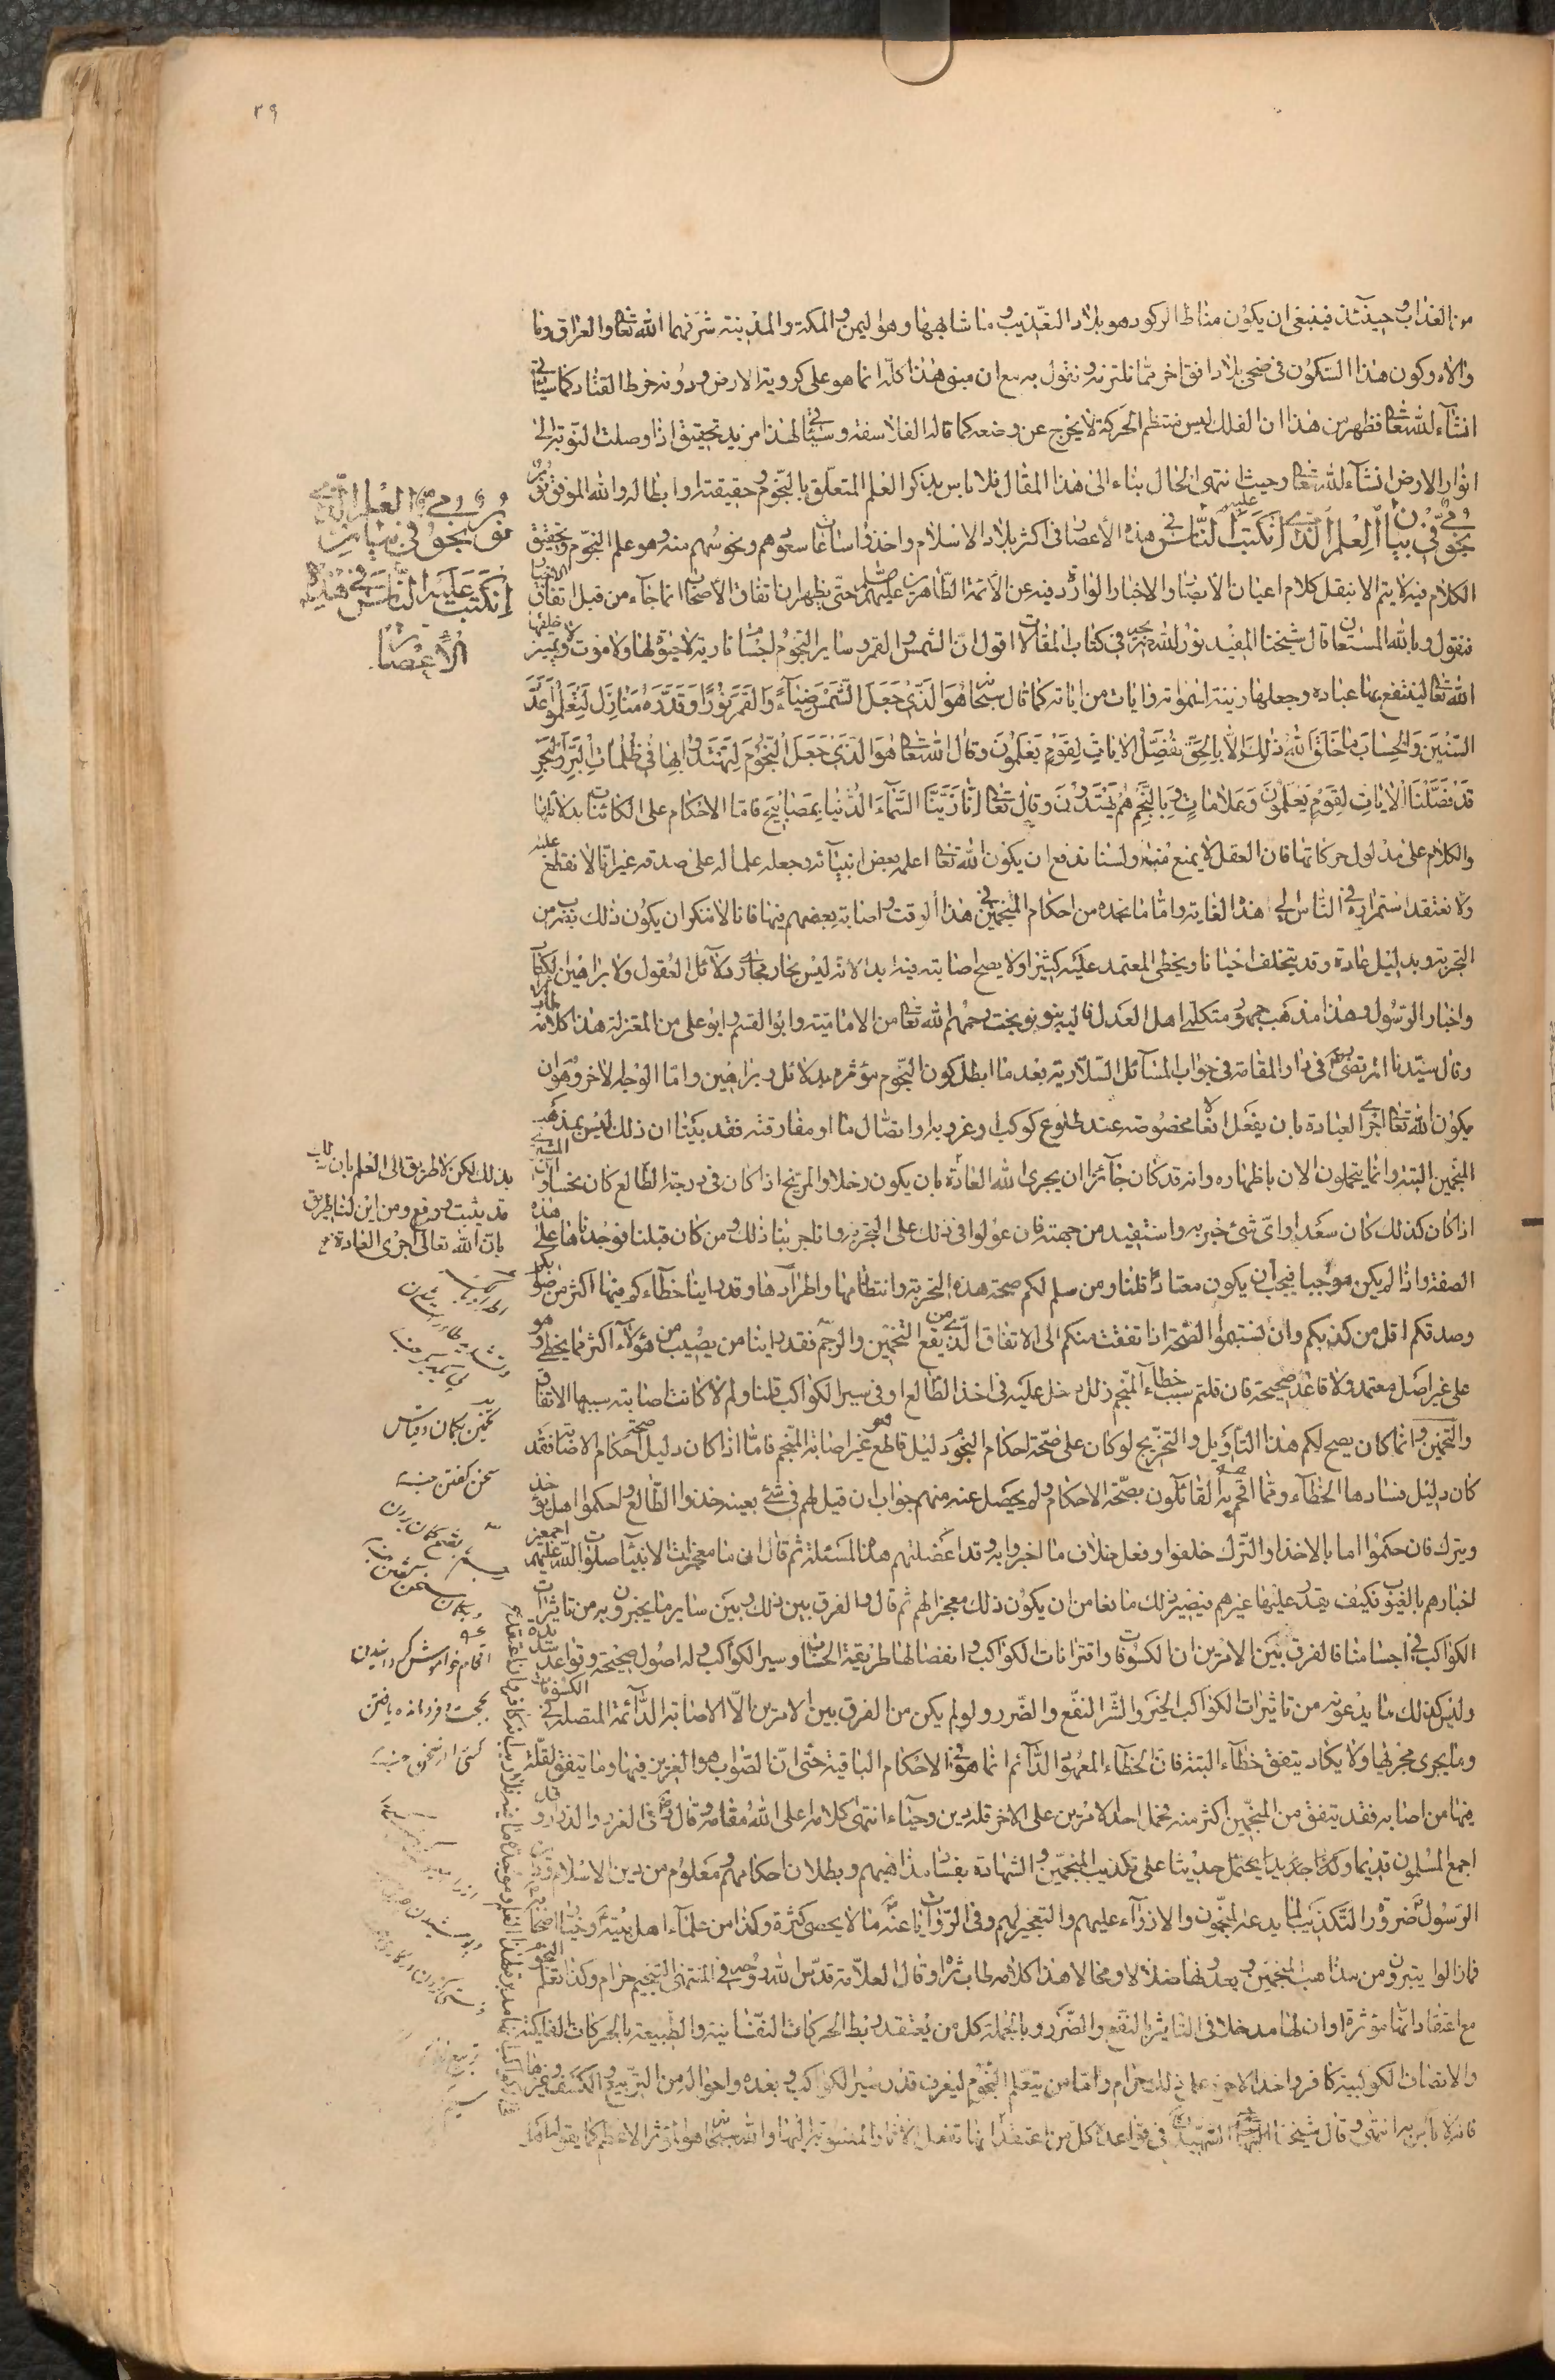 ٣٩
من العذاب وحينئذ فينبغى ان يكون مناط الركود هو بلاد التعذيب وما شابهها وهو اليمن والمكة والمدينة شرفهما الله تعا والعراق وما
والاه وكون هذا السكون فى ضحى بلاد افق اخر مما نلتزمه ونقول به مع ان مبنى هذا كله انما هو على كروية الارض ودونه خرط القتاد كما سياتى
انشاء الله تعا فظهر من هذا ان الفلك ليس منتظم الحركة لا يخرج عن وضعه كما قاله الفلاسفة وسياتى لهذا مزيد تحقيق اذا وصلت النوبة الى
انوار الارض انشاء الله تعا وحيث انتهى الحال بناء الى هذا المقال فلا باس بذكر العلم المتعلق بالنجوم وحقيقته وابطاله والله الموفق نور
نجومى فى بيان العلم الذى انكبت عليه الناس فى هذه الأعصار فى اكثر بلاد الاسلام واخذوا ساعات سعودهم ونحوسهم منه وهو علم النجوم وتحقيق
الكلام فيه لا يتم الا بنقل كلام اعيان الأصحاب والاخبار الواردة فيه عن الائمة الطاهرين عليهم حتى يظهر ان اتفاق الأصحاب انما جاء من قبل اتفاق الاخبار
فنقول وبالله المستعان قال شيخنا المفيد نور الله ضريحه فى كتاب المقالات اقول ان الشمس والقمر وساير النجوم اجسام نارية لا حيوة لها ولا موت ولا تميز خلقها
الله تعالى لينتفع بها عباده وجعلها زينة لسمواته وايات من اياته كما قال سبحانه هُوَ الَّذى جَعَلَ الشَّمْسَ ضِيآءً وَالقَمَرَ نُورًا وَقَدَّرَهُ مَنازِلَ لِتَعْلَمُوا عَدَدَ
السِّنينَ وَالْحِسابَ ما خَلَقَ اللهُ ذلِكَ اِلاّ بِالحَقِّ يُفَصِّلُ الاياتِ لِقَوْمٍ يَعْلَمُونَ وقال الله تعا هُوَ الَّذى جَعَلَ لَكُمُ النُّجُومَ لِتَهْتَدُوا بِها فى ظُلُماتِ الْبَرِّ وَالبَحْرِ
قَدْ فَصَّلْنَا الاياتِ لِقَوْمٍ يَعْلَمُونَ وَعَلاماتٍ وَبِالنَّجْمِ هُمْ يَهْتَدُونَ وقال تعالى اِنّا زَيَّنَّا السَّمآءَ الدُّنْيا بِمَصابيحَ فاما الاحكام على الكائنات بدلالتها
والكلام على مدلول حركاتها فان العقل لا يمنع منه ولسنا ندفع ان يكون الله تعا اعلمه بعض انبيائه وجعله علما له على صدقه غير انا لا نقطع عليه
ولا نعتقد استمراره فى الناس الى هذه الغاية واما ما نجده من احكام المنجمين فى هذا الوقت واصابة بعضهم فيها فانا لا ننكر ان يكون ذلك بضرب من
التجربة وبدليل عادة وقد يتخلف احيانا ويخطى المعتمد عليه كثيرا ولا يصح اصابته فيه ابدا لانه ليس بجار مجرى دلائل العقول ولا براهين الكتاب
واخبار الرسول وهذا مذهب جمهور متكلمى اهل العدل واليه ذهب بنو نوبخت رحمهم الله تعا من الامامية وابو القسم وابو على من المعتزلة هذا كلامه
وقال سيدنا المرتضى فى جواب المسائل السلارية بعد ما ابطل كون النجوم مؤثرة بدلائل وبراهين واما الوجه الاخر وهو ان
يكون الله تعا اجرى العادة بان يفعل افعالا مخصوصة عند طلوع كوكب او غروبه او اتصاله او مفارقته فقد بينا ان ذلك ليس بمذهب
المنجمين البتة وانما يتجملون الان باظهاره وانه قد كان جائزا ان يجرى الله العادة بان يكون زحل او المريخ اذا كان فى درجة الطالع كان نحسا وان المشترى
اذا كان كذلك كان سعدا واى شئ خبر به واستفيد من جهته فان عولوا فى ذلك على التجربة وانا جربنا ذلك ومن كان قبلنا فوجدناها على هذه
الصفة واذا لم يكن موجبا فيجب ان يكون معتادا قلنا ومن سلم لكم صحة هذه التجربة وانتظامها واطرادها وقد راينا خطاءكم فيها اكثر من صوابكم
وصدقكم اقل من كذبكم وان نسبتموا الصحة اذا تفقت منكم الى الاتفاق الذى يقع من التخمين والرجم فقد راينا من يصيب من هؤلاء اكثر مما يخطى وهو
على غير اصل معتمد ولا قاعدة صحيحة فان قلتم سبب خطاء المنجم زلل دخل عليه فى اخذ الطالع او فى سير الكواكب قلنا ولم لا كانت اصابته سببها الاتفاق
والتخمين وانما كان يصح لكم هذا التأويل والتخريج لو كان على صحة احكام النجوم دليل قاطع هو غير اصابة المنجم فاما اذا كان دليل صحة احكام الاصابة فقد
كان دليل فسادها الخطاء ومما افحم به القائلون بصحة الاحكام ولم يحصل عنه منهم جواب ان قيل لهم فى شئ بعينه خذوا الطالع واحكموا هل يؤخذ
ويترك فان حكموا اما بالاخذ او الترك خلفوا وفعل خلاف ما اخبروا به وقد اعضلتهم هذه المسئلة ثم قال ان من معجزات الانبياء صلوات الله عليهم اجمعين
اخبارهم بالغيوب فكيف يقدر عليها غيرهم فيصير ذلك مانعا من ان يكون ذلك معجزا لهم ثم قال والفرق بين ذلك وبين ساير ما يخبرون به من تاثيرات
الكواكب فى اجسامنا فالفرق بين الامرين ان الكسوفات واقترانات الكواكب وانفصالها طريقه الحساب وسير الكواكب وله اصول صحيحة وقواعد سديدة
وليس كذلك ما يدعونه من تاثيرات الكواكب الخير والشر النفع والضرر ولو لم يكن من الفرق بين الامرين الا الاصابة الدائمة المتصلة فى الكسوفات
وما يجرى مجراها ولا يكاد يتفق خطاء البتة فان الخطاء المعهود الدائم انما هو فى الاحكام الباقية حتى ان الصواب هو العزيز فيها وما يتفق لقلة
فيها من اصابة فقد يتفق من المنجمين اكثر منه فحمل احد الامرين على الاخر قلة دين وحياء انتهى كلامه اعلى الله مقامه وقال فى الغرر والدرر وقد
اجمع المسلمون قديما وحديثا على تكذيب المنجمين والشهادة بفساد مذاهبهم وبطلان احكامهم ومعلوم من دين الاسلام
الرسول ضرورة التكذيب بما يدعيه المنجمون والازراء عليهم والتعجيز لهم وفى الروايات عنه ما لا يحصى كثرة وكذا من علماء اهل بيته وخيار اصحابه
فما زالوا يتبرؤن من مذاهب المنجمين ويعدونها ضلالا ومحالا هذا كلامه طاب ثراه وقال العلامة قدس الله روحه فى المنتهى التنجيم حرام وكذا تعلم النجوم
مع اعتقاد انها مؤثرة او ان لها مدخلا فى التاثير بالنفع والضرر وبالجملة كل من يعتقد ربط الحركات النفسانية والطبيعية بالحركات الفلكية
والاتصالات الكوكبية كافر واخذ الاجرة على ذلك حرام واما من يتعلم النجوم ليعرف قدر سير الكواكب وبعده واحواله من التربيع والكسف وغيرها
فانه لا باس به انتهى وقال شيخنا الشهيد فى قواعده كل من اعتقد انها تفعل الاثار المنسوبة اليها والله سبحانه هو المؤثر الاعظم كما يقوله اهل
نور نجومى فى بيان العلم الذى
انكبت عليه الناس فى هذه
الأعصار
بذلك لكن لا طريق الى العلم بان
قد يثبت ورفع ومن اين لنا طريق
بان الله تعالى اجرى العادة
تخمين بكمان وقياس
سخن كفتن
افحام خواموش كردانيدن
بحجت ودرمانده يافتن